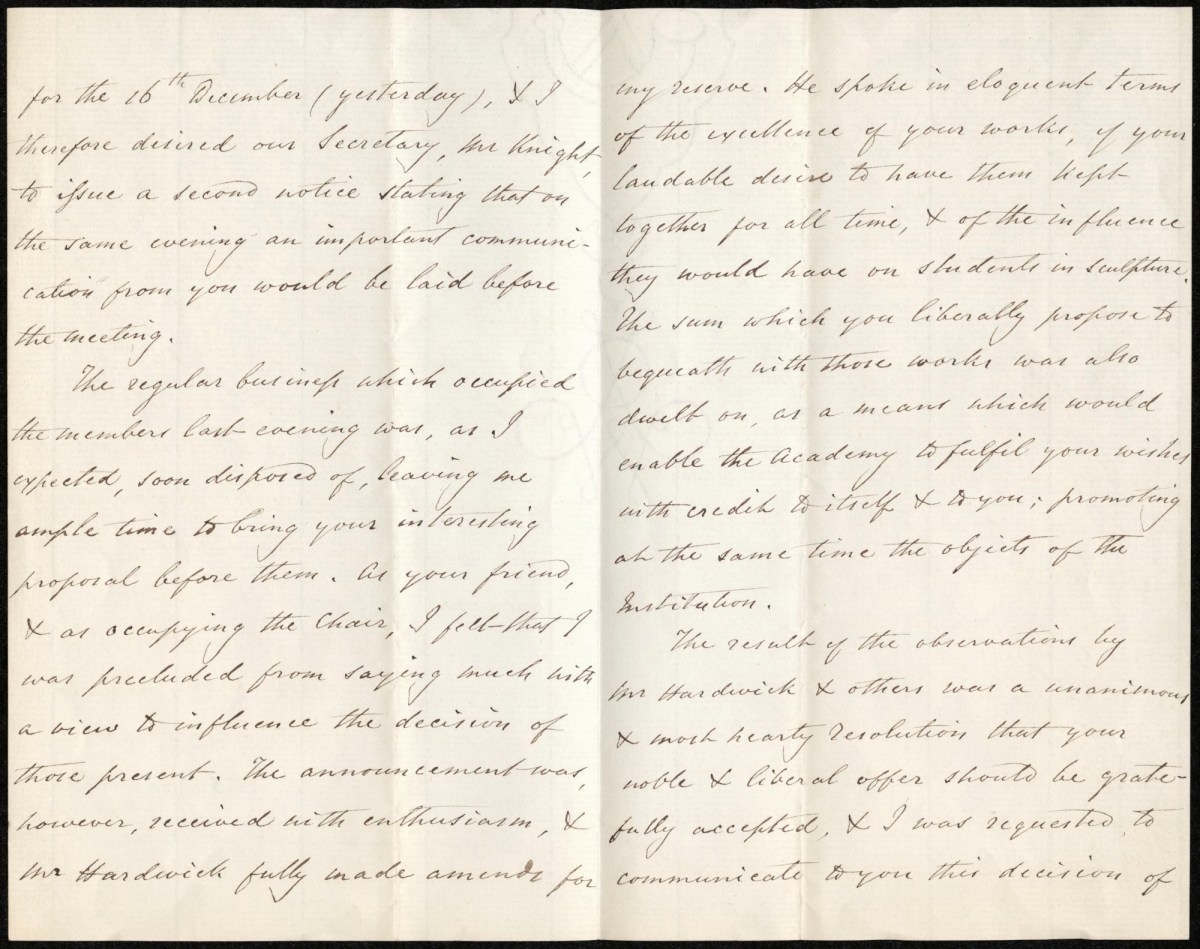 for the 16th December (yesterday), & I
therefore desired our Secretary, Mr Knight,
to issue a second notice stating that on
the same evening an important communi-
cation from you would be laid before
the meeting.
The regular business which occupied
the members last evening was, as I
expected, soon disposed of, leaving me
ample time to bring your interesting
proposal before them. As your friend,
& as occupying the Chair, I felt that I
was precluded from saying much with
a view to influence the decision of
those present. The announcement was,
however, received with enthusiasm, &
Mr Hardwick fully made amends for
my reserve. He spoke in eloquent terms
of the excellence of your works, of your
laudable desire to have them kept
together for all time, & of the influence
they would have on students in sculpture.
The sum which you liberally propose to
bequeath with those works was also
dwelt on, as a means which would
enable the Academy to fulfil your wishes
with credit to itself & to you; promoting
at the same time the objects of the
Institution.
The result of the observations by
Mr Hardwick & others was a unanimous
& most hearty resolution that your
noble & liberal offer should be grate-
fully accepted, & I was requested to
communicate to you this decision of